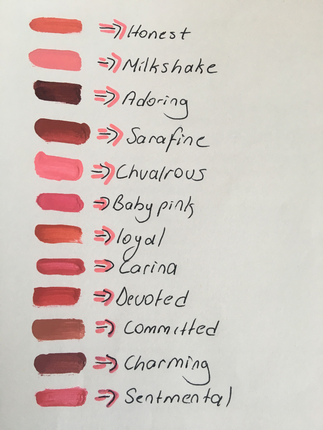 Honest
Milkshake
Adoring
Sarafine
Chvalrous
Baby pink
loyal
Carina
Devoted
Committed
Charming
Sentmental